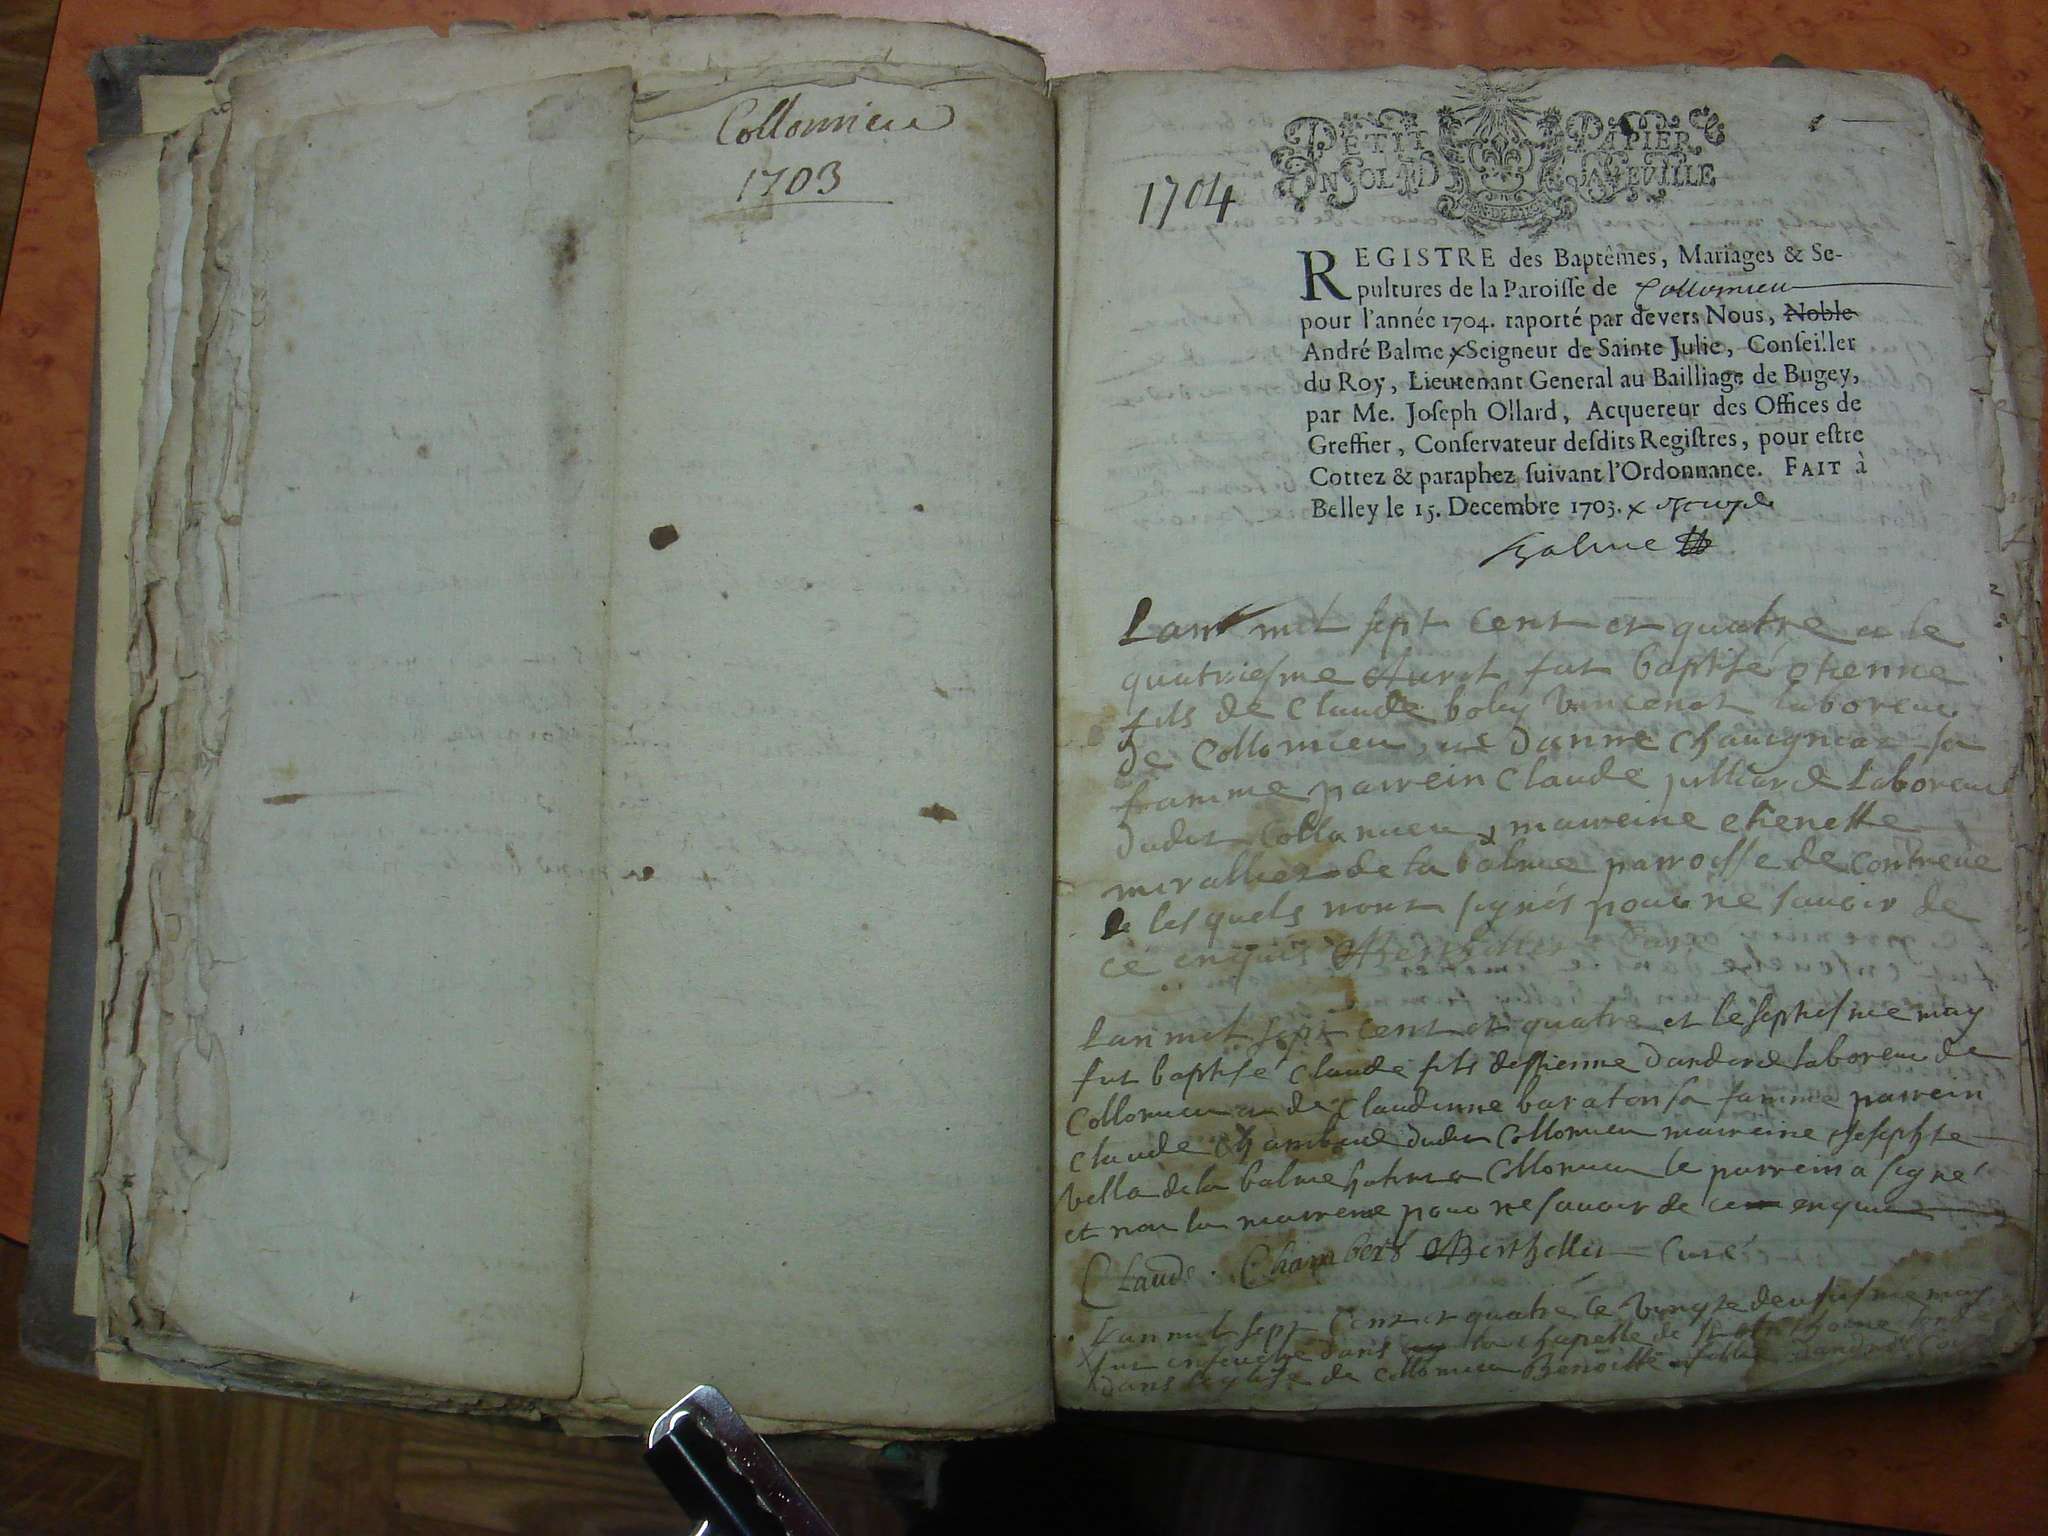 Collomieu
1703
PETIT PAPIER
UN SOL 4 D LA FEUILLE
1704
REGISTRE des Baptêmes, Mariages & Se-
pultures de la Paroisse de Collomieu
pour l'année 1704. raporté par devers Nous, Noble
André Balme x Seigneur de Sainte Julie, Conseiller
du Roy, Lieutenant General au Bailliage de Bugey,
par Me. Joseph Ollard, Acquereur des Offices de
Greffier, Conservateur desdits Registres, pour estre
Cottez & paraphez suivant l'Ordonnance. FAIT à
Belley le 15. Decembre 1703. x
Balme
Lan mil sept cent et quatre et le
quatriesme Avril fut baptisé etienne
fils de Claude boley vincenot laboreur
de Collomieu, et danne Chauignar sa
famme parrein Claude julliard Laboreur
dudit Collomieu & marreine etienette
mirallier de la balme parroisse de Contreue
lesquels nont signés pour ne sauoir de
ce enquis Berthellier Curé
Lan mil sept cent et quatre et le septiesme may
fut baptisé Claude fils destienne dandard laboreur de
Collomieu et de Claudinne baraton sa famme parrein
claude Chambard dudit Collomieu marreine Josephte
vella de la balme Collomieu le parrein a signé
et non la marreine pour ne sauoir de ce enquise
Claude . Chamberd Berthellier Curé
Lan mil sept cent et quatre le vingte deusiesme may
fut enseuelie dans la chapelle de St anthoine
dans leglise de Collomieu Benoitte fille dandré